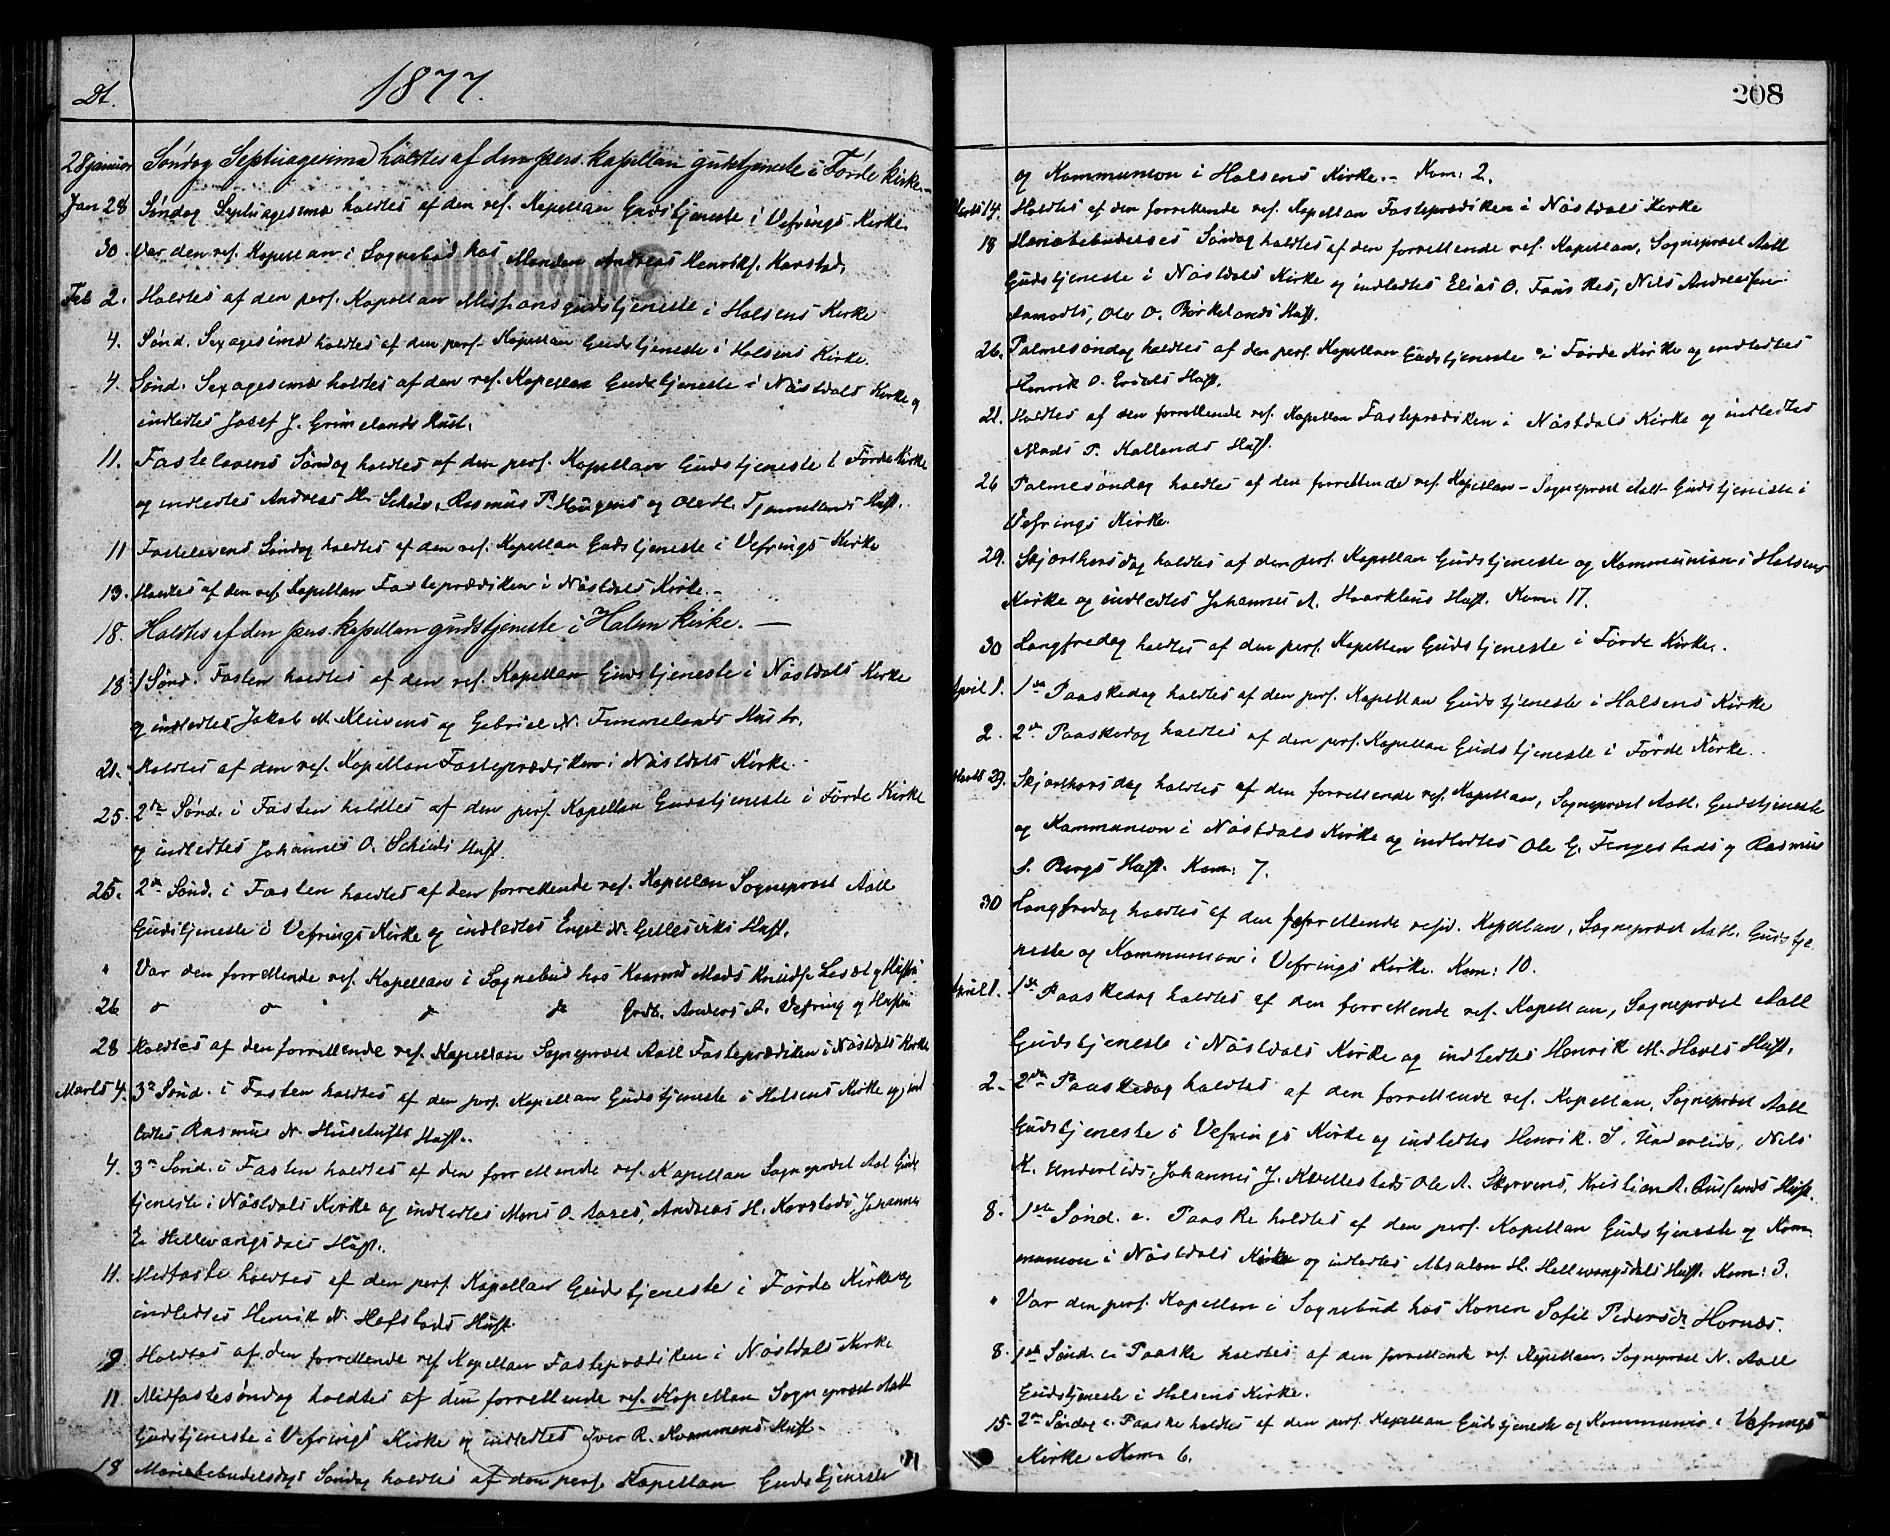 Dt. 1877.
28 januar Søndag Septuagesima holdtes af den pers. kapellan gudstjeneste i Førde kirke.
Jan 28 Søndag Septuagesima holdtes af den res. Kapellan Gudstjeneste i Vefrings Kirke.
30. Var den res. Kapellan i Sognebud hos Manden Andreas Henriks. Karstad.
Feb 2. Holdtes af den pers. Kapellan Missionsgudstjeneste i Holsens Kirke
4. Sønd. Sexagesima holdtes af den pers. Kapellan Gudstjeneste i Holsens Kirke.
4. Sønd. Sexagesima holdtes af den res. Kapellan Gudstjeneste i Nøstdals Kirke og
indledtes Josef J. Grimelands Hust.
11. Fastelavens Søndag holdtes af den pers. Kapellan Gudstjeneste i Førde Kirke
og indledtes Andreas H. Schei, Rasmus P. Haugens og Ole H. Tjønnelands Hust.
11 Fastelavens Søndag holdtes af den res. Kapellan Gudstjeneste i Vefrings Kirke
13. Holdtes af den res. Kapellan Fasteprædiken i Nøstdals Kirke.
18. Holdtes af den pers. kapellan gudstjeneste i Holsen kirke.
18. 1 Sønd. Fasten holdtes af den res. Kapellan Gudstjeneste i Nøstdals Kirke
og indledtes Jakob M. Kleivens og Gabriel N. Timmelands Hustr.
21. Holdtes af den res. Kapellan Fasteprædiken i Nøstdals Kirke.
25. 2den Sønd. i Fasten holdtes af den pers. Kapellan Gudstjeneste i Førde Kirke
og indledtes Johannes O. Scheids Hust.
25. 2den Sønd. i Fasten holdtes af den forrettende res. Kapellan Sogneprest Aall
Gudstjeneste i Vefrings Kirke og indledtes Engel N. Gellesviks Hust.
" Var den forrettende res. Kapellan i Sognebud hos Mads Knudss. og Hustru
26 Anders A. Vefring og Hustru
28 Holdtes af den forrettende res. Kapellan Sogneprest Aall Fasteprædiken i Nøstdals Kirke
Marts 4. 3die Sønd. i Fasten holdtes af den pers. Kapellan Gudstjeneste i Holsens Kirke og ind
ledtes Rasmus N. Husetufts Hust.
4. 3die Sønd. i Fasten holdtes af den forrettende res. Kapellan Sogneprest Aall Guds
tjeneste i Nøstdals Kirke og indledtes Mons O. Aases, Andreas H. Karstads, Johannes
E. Hellevangsdals Hust.
11. Midfaste holdtes af den pers. Kapellan Gudstjeneste i Førde Kirke og
indledtes Henrik N. Hafstads Hust.
9 Holdtes af den forrettende res Kapellan Fasteprædiken i Nøstdals Kirke
11 Midfastesøndag holdtes af den forrettende res. Kapellan Sogneprest Aall
Gudstjeneste i Vefrings Kirke og indledtes Iver R. Kvammens Hust.
18 Mariebebudelsdags Søndag holdtes af den pers. Kapellan Gudstjeneste
208
og Kommunion i Holsens Kirke. Kom: 2.
Marts 14. Holdtes af den forrettende res. Kapellan Fasteprædiken i Nøstdals Kirke
18 Mariæbebudelses Søndag holdtes af den forrettende res. Kapellan, Sogneprest Aall
Gudstjeneste i Nøstdals Kirke og indledtes Elias O. Fauskes, Nils
Ole O. Birkelands Hust.
26. Palmesøndag holdtes af den pers. Kapellan Gudstjeneste i Førde Kirke og indledtes
Henrik O. Hust.
21. Holdtes af den forrettende res. Kapellan Fasteprædiken i Nøstdals Kirke og indledtes
Mads T. Kallands Hust.
26 Palmesøndag holdtes af den forrettende res. Kapellan - Sogneprest Aall - Gudstjeneste i
Vefrings Kirke.
29. Skjærthorsdag holdtes af den pers. Kapellan Gudstjeneste og Kommunion i Holsens
Kirke og indledtes Johannes A. Haarklaus Hust. Kom: 17.
30 Langfredag holdtes af den pers. Kapellan Gudstjeneste i Førde Kirke.
April 1. 1ste Paaskedag holdtes af den pers. Kapellan Gudstjeneste i Holsens Kirke
2. 2den Paaskedag holdtes af den pers. Kapellan Gudstjeneste i Førde Kirke.
Marts 29. Skjærthorsdag holdtes af den forrettende res. Kapellan, Sogneprest Aall. Gudstjeneste
og Kommunion i Nøstdals Kirke og indledtes Ole G. Tingestads og Rasmus
S. Bergs Hust. Kom: 7.
30 Langfredag holdtes af den forrettende resid. Kapellan, Sogneprest Aall. Gudstje
neste og Kommunion i Vefrings Kirke. Kom: 10.
April 1. 1ste Paaskedag holdtes af den forrettende res. Kapellan, Sogneprest Aall
Gudstjeneste i Nøstdals Kirke og indledtes Henrik M. Hovls Hust.
2. 2den Paaskedag holdtes af den forrettende res. Kapellan, Sogneprest Aall
Gudstjeneste i Vefrings Kirke og indledtes Henrik S. Underlids, Nils
K. Underlids, Johannes J. Kvellestads Ole A. Skorvens, Kristian A. Hust.
8. 1ste Sønd. e. Paaske holdtes af den pers. Kapellan Gudstjeneste og Kom
munion i Nøstdals Kirke og indledtes Absalon H. Hellevangsdals Hust. Kom: 3.
" Var den pers. Kapellan i Sognebud hos Konen Sofie Pedersdr. Hornæs.
8. 1ste Sønd. e. Paaske holdtes af den forrettende res. Kapellan, Sogneprest N. Aall
Gudstjeneste i Holsens Kirke.
15. 2den Søndag e. Paaske holdtes af den pers. Kapellan Gudstjeneste og Kommunion i Vefrings
Kirke Kom 6.